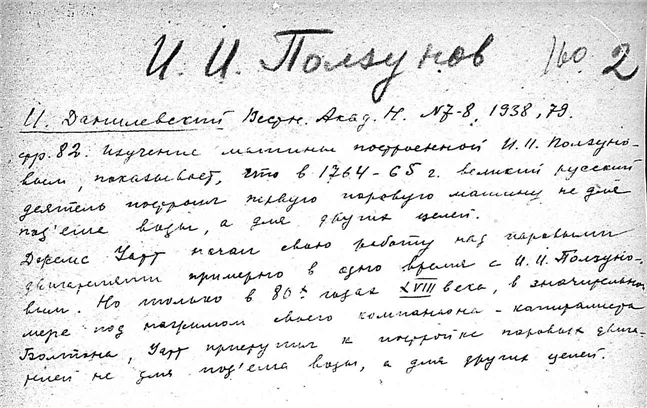 И. И. Ползунов 2
И. Данилевский Вестн. Акад. Н. N7-8, 1938, 79.
стр. 82. Изучение машины построенной И. И. Ползуно-
вым, показывает, что в 1764-65 г. великий русский
деятель построил первую паровую машину не для
под'ема воды, а для других целей.
Джемс Уатт начал свою работу над паровыми
двигателями примерно в одно время с И. И. Ползуно-
вым. Но только в 80х годах XVIII века, в значительной
мере под нажимом своего компаниона - капиталиста
Болтона, Уатт приступил к постройке паровых двига-
телей не для под'ема воды, а для других целей.